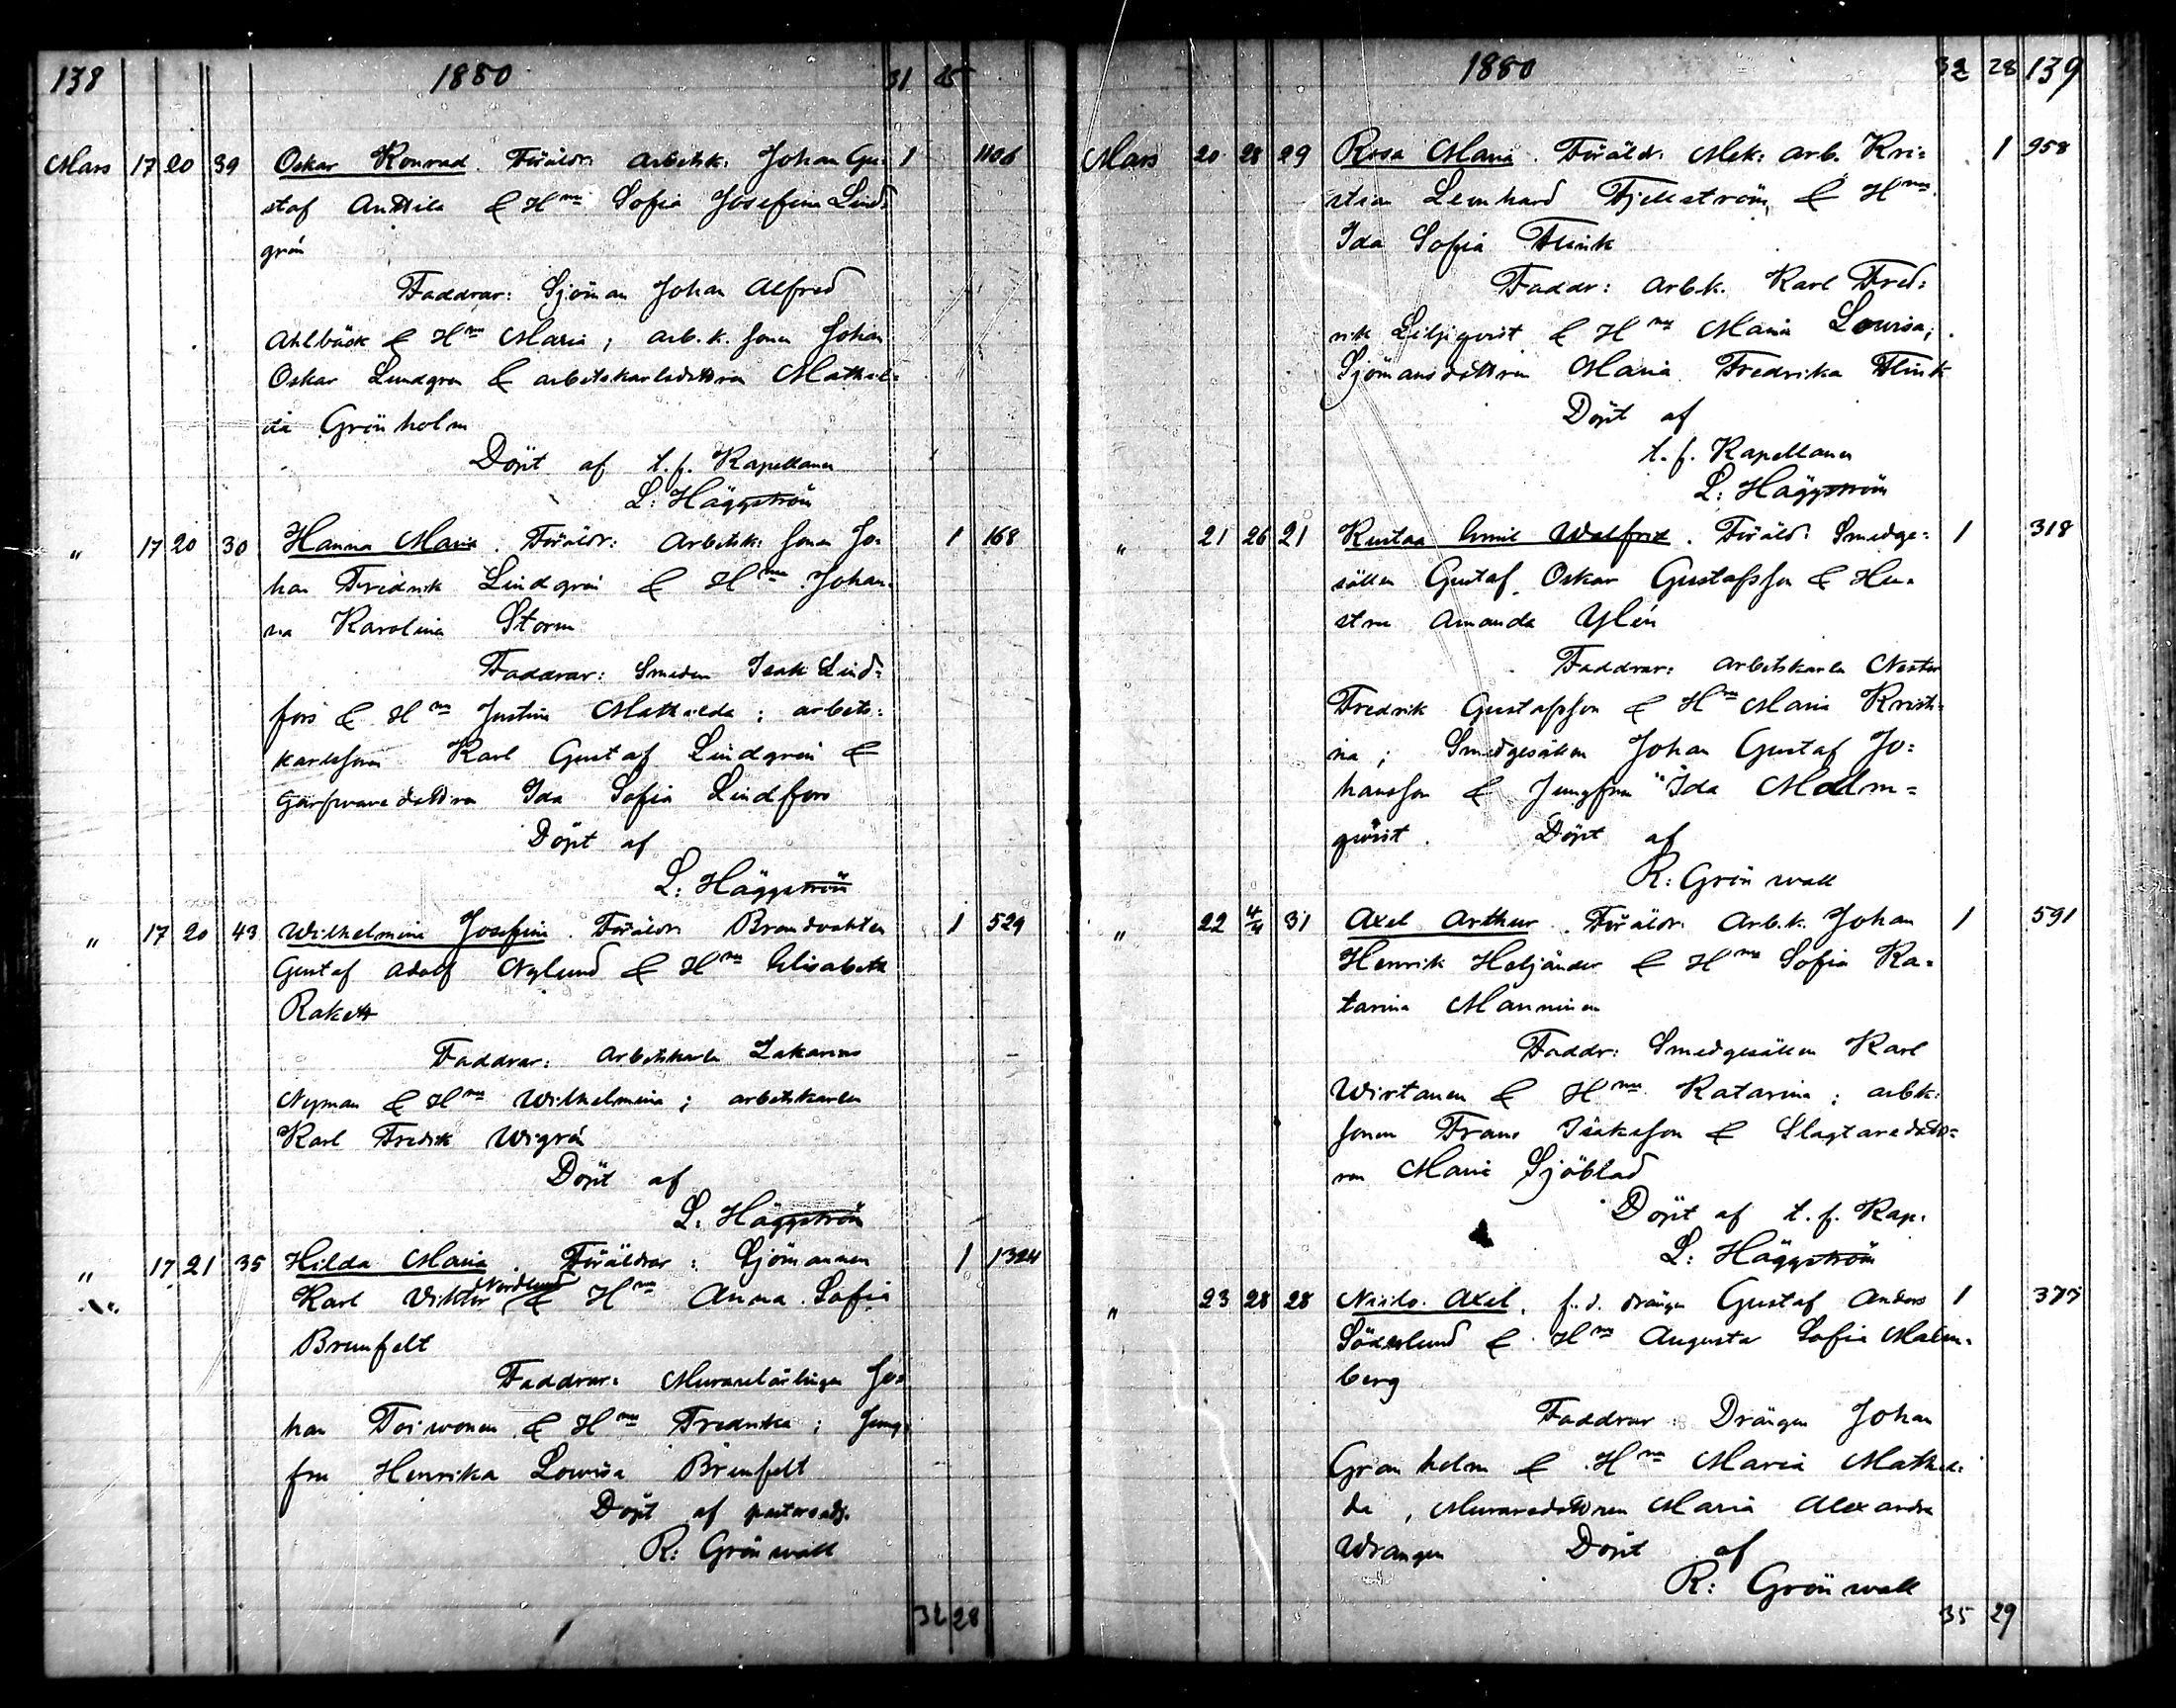 138 1880 31 25
Mars 17 20 39 Oskar Konrad. Föräldr: Arbetsk: Johan Gu= 1 1106
staf Anttila & H:nu Sofia Josefina Lind=
grén
Faddrar: Sjöman Johan Alfred
Ahlbäck & H:nu Maria; arb.k. sonen Johan
Oskar Lundgren & arbetskarlsdottren Mathil=
da Grönholm
Döpt af t.f. Kapellanen
L: Häggström
" 17 20 30 Hanna Maria. Föräldr: Arbetsk: sonen Jo= 1 168
han Fredrik Lindgrén & H:nu Johan=
na Karolina Storm
Faddrar: Smeden Isak Lind=
fors & H:nu Justina Mathilda; arbets=
karlssonen Karl Gustaf Lindgrén &
garfvaredottren Ida Sofia Lindfors
Döpt af
L: Häggström
" 17 20 43 Wilhelmina Josefina. Föräldr: Brandvakten 1 529
Gustaf Adolf Nylund & H:nu Elisabeth
Rakett
Faddrar: Arbetskarlen Zakarias
Nyman & H:nu Wilhelmina; arbetskarlen
Karl Fredrik Wigrén
Döpt af
L. Häggström
" 17 21 35 Hilda Maria. Föräldrar: Sjömannen 1 1324
Karl Viktor Nordlund & H:nu Anna Sofia
Brunfelt
Faddrar: Murarelärlingen Jo=
han Toiwonen & H:nu Fredrika; Jung=
fru Henrika Lowisa Brunfelt
Döpt af pastorsadj.
R: Grönwall
32 28
1880 32 28 139
Mars 20 28 29 Rosa Maria. Föräldr: Mek: arb. Kri= 1 958
stian Leonhard Fjellström & H:nu
Ida Sofia Flink
Faddr: Arb.k. Karl Fred=
rik Liljeqvist & H:nu Maria Lovisa;
Sjömansdottren Maria Fredrika Flink
Döpt af
t.f. Kapellanen
L: Häggström
" 21 26 21 Kustaa Emil Walfrid. Föräld: Smedge= 1 318
sällen Gustaf Oskar Gustafsson & Hu=
stru Amanda Ylén
Faddrar: Arbetskarlen Nestor
Fredrik Gustafsson & H:nu Maria Kristi=
na; Smedgesällen Johan Gustaf Jo=
hansson & Jungfru Ida Malm=
qvist. Döpt af
R: Grönwall
" 22 4/4 31 Axel Arthur. Föräldr: Arb.k. Johan 1 591
Henrik Heljander & H:nu Sofia Ka=
tarina Manninen
Faddr: Smedgesällen Karl
Wirtanen & H:nu Katarina; arbk:
sonen Frans Isaksson & Slagtaredott=
ren Maria Sjöblad
Döpt af t.f. Kap.
L: Häggström
" 23 28 28 Niilo Axel. f.d. drängen Gustaf Anders 1 375
Söderlund & H:nu Augusta Sofia Malm=
berg
Faddrar: Drängen Johan
Granholm & H:nu Maria Mathil=
da, Muraredottren Maria Alexandra
Wrangen Döpt af
R: Grönwall
35 29